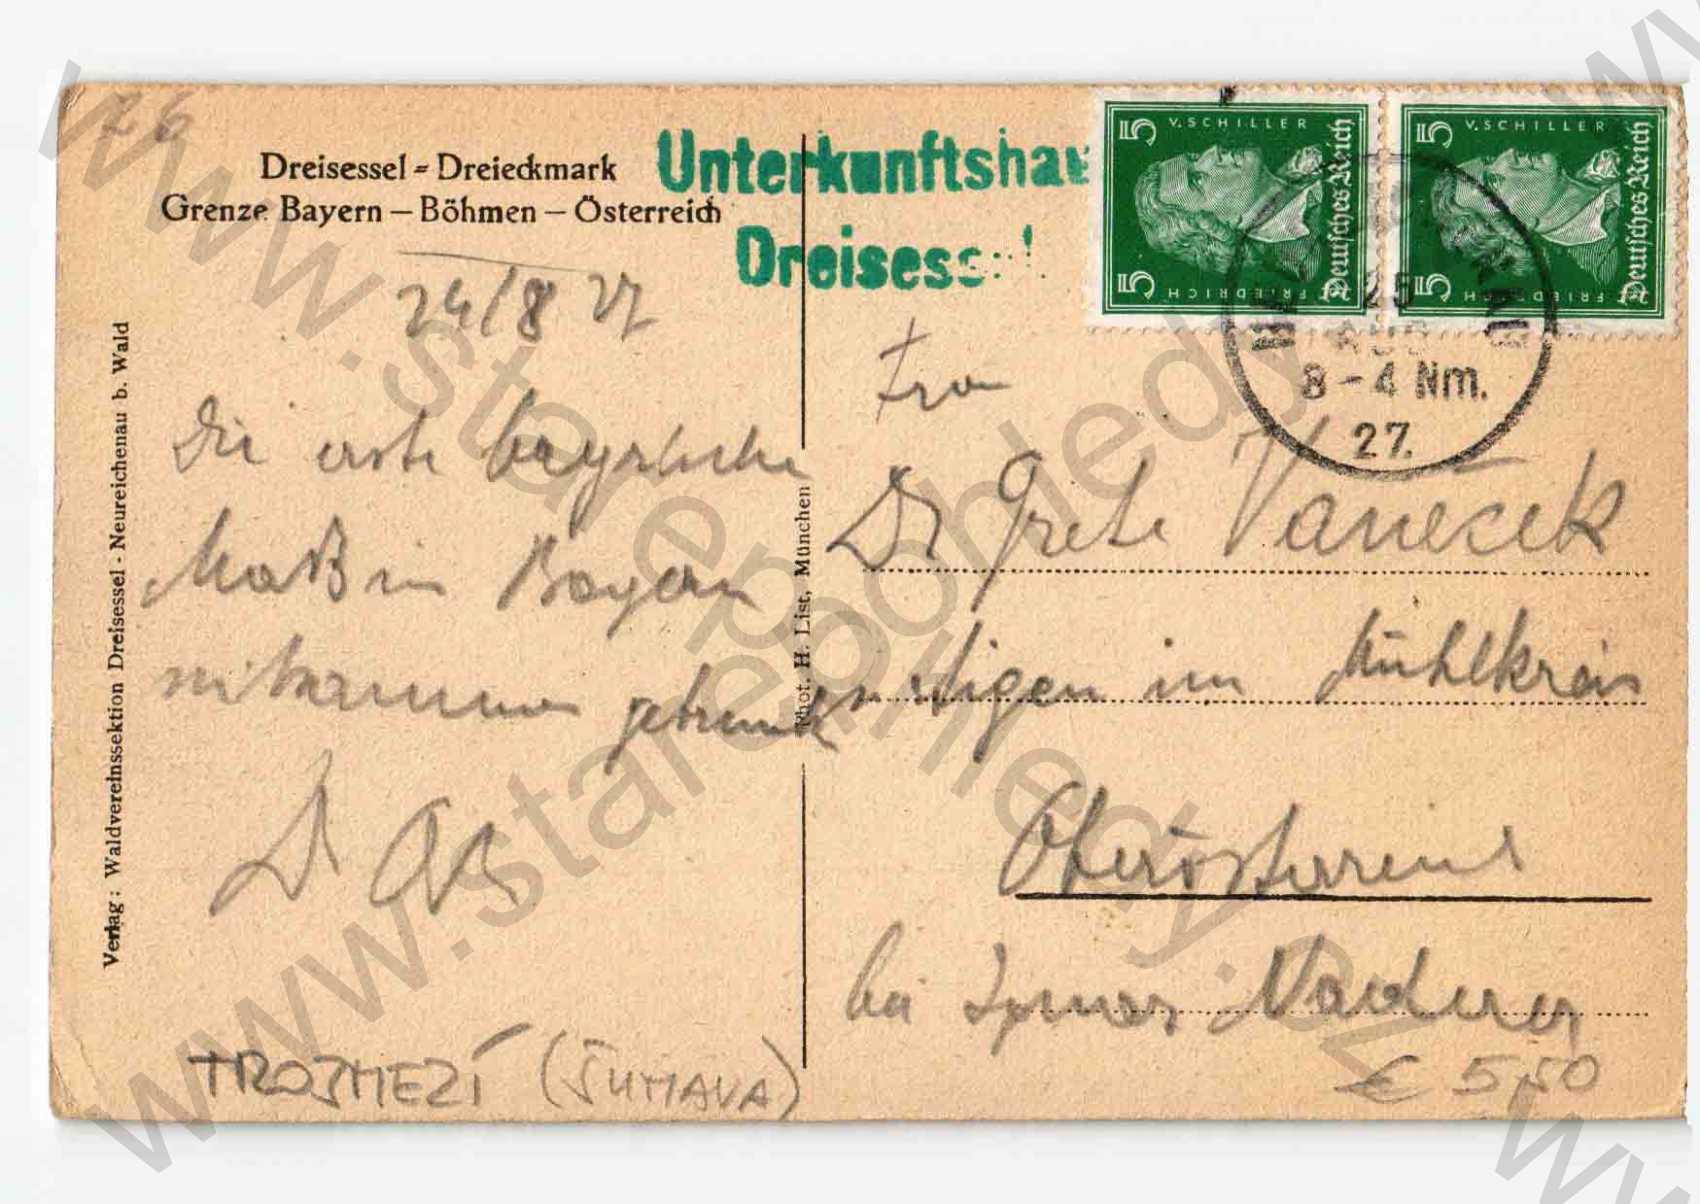 26
Dreisessel = Dreieckmark
Grenze Bayern – Böhmen – Österreich
Unterkunftshau
Dreisess
24/8 27
Die erste bayrische
Maß in Bayern
mitsammen getrunken
Dr
TROJMEZÍ (ŠUMAVA)
Verlag: Waldvereinssektion Dreisessel - Neureichenau b. Wald
Phot. H. List, München
5 V. SCHILLER
Deutsches Reich
5 FRIEDRICH
5 V. SCHILLER
Deutsches Reich
5 FRIEDRICH
25
AUG
8-4 Nm.
27.
Frau
Dr Grete Vaneček
Aigen im Mühlkreis
Oberösterreich
bei
€ 5,50
www.starepohledy.cz
www.starepohledy.cz